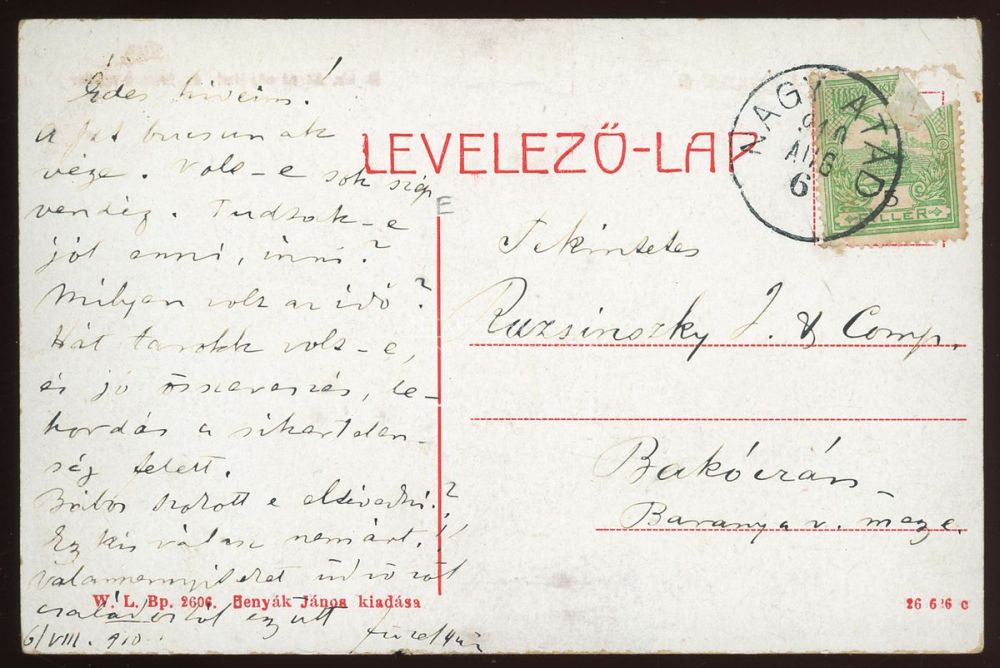 Édes hiveim!
A fát bucsunak
vége. Volt-e sok szép
vendég. Tudtok-e
jól enni, inni?
Milyen volt az idő?
Hát tarokk volt-e,
és jó összeveszés, le-
hordás a sikertelen-
ség felett.
szokott e
Ez kis válasz nem árt!!
valamennyiteket üdvözöl
családostól együtt
6/VIII. 910
LEVELEZŐ-LAP
E
NAGY ATÁD
910
AUG
6
FILLÉR
Tekintetes
Ruzsinszky J. & Comp.
Bakóczán
Baranya v. megye.
W. L. Bp. 2606. Benyák János kiadása